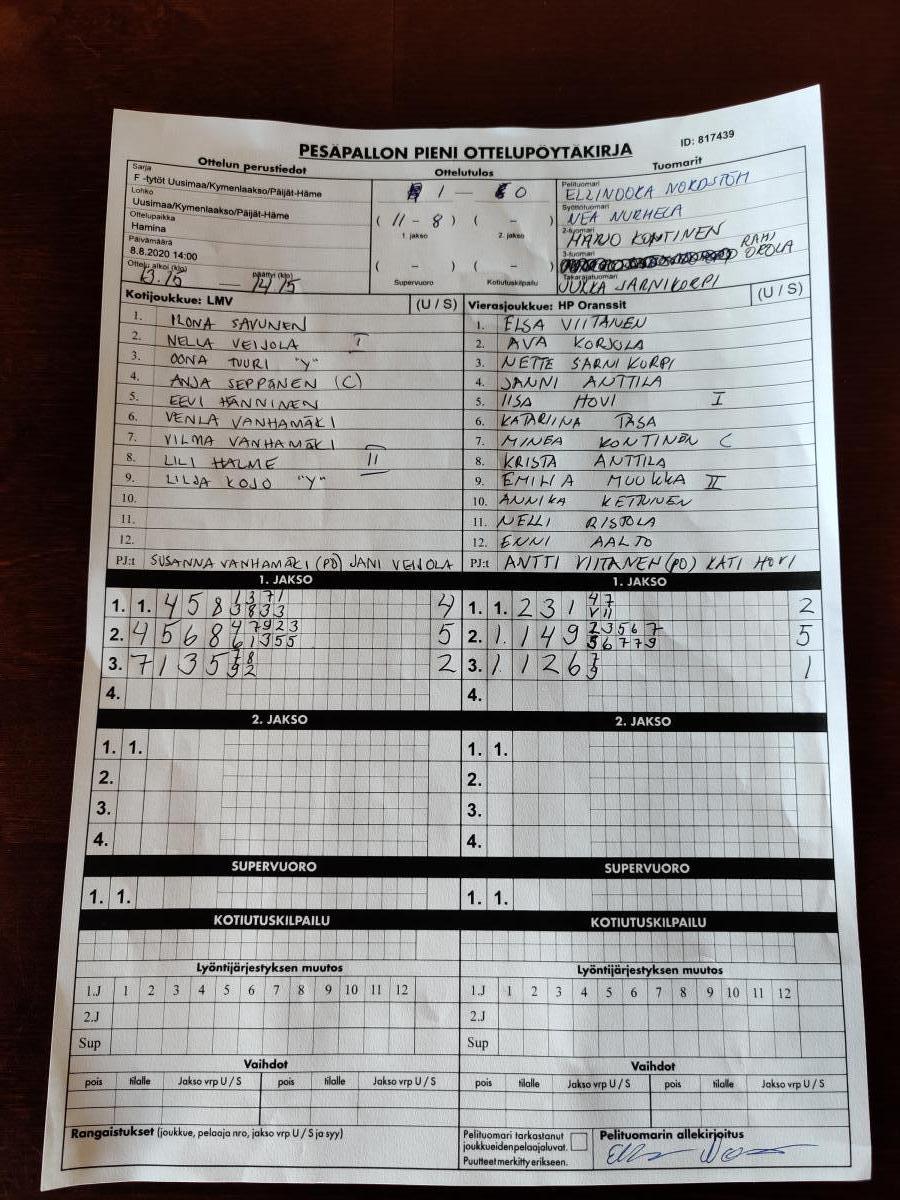 PESÄPALLON PIENI OTTELUPÖYTÄKIRJA
ID: 817439
Ottelun perustiedot
Sarja
F -tytöt Uusimaa/Kymenlaakso/Päijät-Häme
Lohko
Uusimaa/Kymenlaakso/Päijät-Häme
Ottelupaikka
Hamina
Päivämäärä
8.8.2020 14:00
Ottelu alkoi (klo) päättyi (klo)
13.15 — 14 15
Ottelutulos
1 — 0
( 11 - 8 ) ( - )
1. jakso 2. jakso
( - ) ( - )
Supervuoro Kotiutuskilpailu
Tuomarit
Pelituomari
ELLINOORA NORDSTÖM
Syöttötuomari
NEA NURHELA
2-tuomari
MARJO KONTINEN
3-tuomari
RAMI OROLA
Takarajatuomari
JUKKA JÄRNIKORPI
Kotijoukkue: LMV (U / S)
1. ILONA SAVUNEN
2. NELLA VEIJOLA I
3. OONA TUURI "Y"
4. ANJA SEPPÄNEN (C)
5. EEVI HÄNNINEN
6. VENLA VANHAMÄKI
7. VILMA VANHAMÄKI
8. LILI HALME II
9. LILJA KOJO "Y"
10.
11.
12.
PJ:t SUSANNA VANHAMÄKI (PÖ) JANI VEIJOLA
Vierasjoukkue: HP Oranssit (U / S)
1. ELSA VIITANEN
2. AVA KORJOLA
3. NETTE SÄRNIKORPI
4. JANNI ANTTILA
5. IISA HOVI I
6. KATARIINA TASA
7. MINEA KONTINEN C
8. KRISTA ANTTILA
9. EMILIA MUUKKA II
10. ANNIKA KETTUNEN
11. NELLI RISTOLA
12. ENNI AALTO
PJ:t ANTTI VIITANEN (PÖ) KATI HOVI
1. JAKSO
1. 1. 4 5 8 1 3 7 1 4
3 8 3 3
2. 4 5 6 8 4 7 9 2 3 5
6 1 3 5 5
3. 7 1 3 5 7 8 2
9 2
4.
1. JAKSO
1. 1. 2 3 1 4 7 2
V 11
2. 1. 1 4 9 2 3 5 6 7 5
5 6 7 7 9
3. 1. 1 2 6 7 1
9
4.
2. JAKSO
1. 1.
2.
3.
4.
2. JAKSO
1. 1.
2.
3.
4.
SUPERVUORO
1. 1.
SUPERVUORO
1. 1.
KOTIUTUSKILPAILU
KOTIUTUSKILPAILU
Lyöntijärjestyksen muutos
1.J 1 2 3 4 5 6 7 8 9 10 11 12
2.J
Sup
Lyöntijärjestyksen muutos
1.J 1 2 3 4 5 6 7 8 9 10 11 12
2.J
Sup
Vaihdot
pois tilalle Jakso vrp U / S pois tilalle Jakso vrp U / S
Vaihdot
pois tilalle Jakso vrp U / S pois tilalle Jakso vrp U / S
Rangaistukset (joukkue, pelaaja nro, jakso vrp U / S ja syy)
Pelituomari tarkastanut
joukkueiden pelaajaluvat.
Puutteet merkitty erikseen.
Pelituomarin allekirjoitus